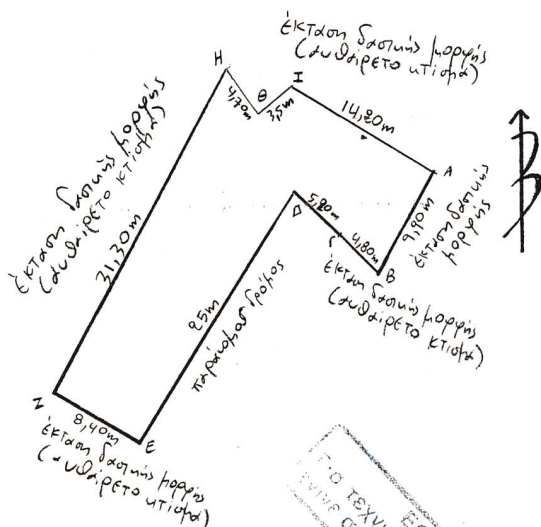 έκταση δασικής μορφής
(αυθαίρετο κτίσμα)
H
I
Θ
4,70m
3,5m
14,80m
A
9,90m
έκταση δασικής
μορφής
B
Δ
5,80m
Γ
4,80m
B
έκταση δασικής μορφής
(αυθαίρετο κτίσμα)
έκταση δασικής μορφής
(αυθαίρετο κτίσμα)
31,30m
25m
παράνομος δρόμος
Z
8,40m
E
έκταση δασικής μορφής
(αυθαίρετο κτίσμα)